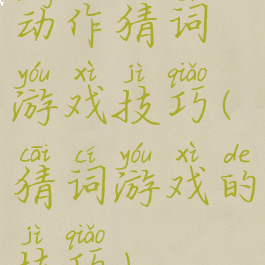 动作猜词
yóu xì jì qiǎo
游戏技巧(
cāi cí yóu xì de
猜词游戏的
jì qiǎo
技巧)